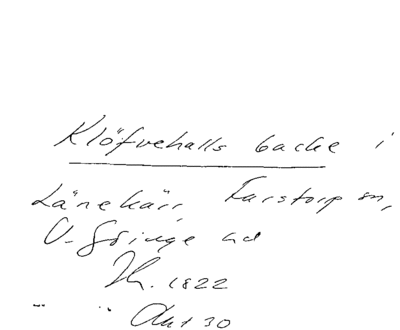 Klöfvehalls backe i
Länekärr, Farstorp sn,
V. Göinge hd
Th. 1822
" " Akt 30